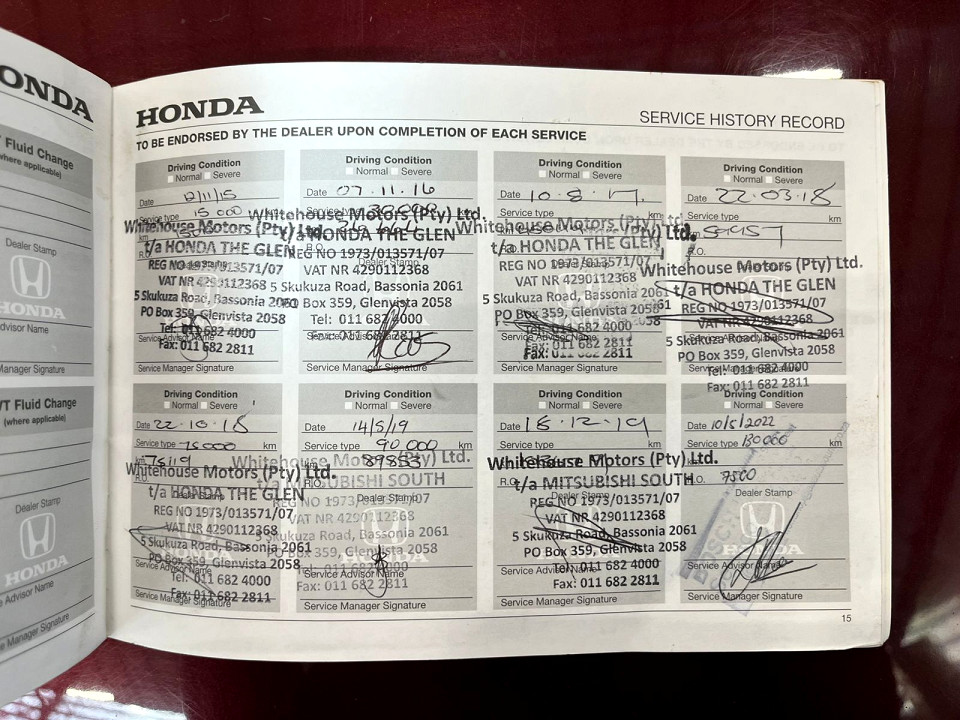 ONDA
Fluid Change
where applicable)
Dealer Stamp
HONDA
Advisor Name
e Manager Signature
VT Fluid Change
(where applicable)
Dealer Stamp
HONDA
e Advisor Name
e Manager Signature
HONDA
SERVICE HISTORY RECORD
TO BE ENDORSED BY THE DEALER UPON COMPLETION OF EACH SERVICE
Driving Condition
Normal Severe
Date 12/11/15
Service type 15 000
km
Whitehouse Motors (Pty) Ltd.
t/a HONDA THE GLEN
REG NO 1973/013571/07
VAT NR 4290112368
5 Skukuza Road, Bassonia 2061
PO Box 359, Glenvista 2058
Tel: 011 682 4000
Fax: 011 682 2811
Service Advisor Name
Service Manager Signature
Driving Condition
Normal Severe
Date 07.11.16
Service type 30 000
Whitehouse Motors (Pty) Ltd.
t/a HONDA THE GLEN
REG NO 1973/013571/07
Dealer Stamp
VAT NR 4290112368
5 Skukuza Road, Bassonia 2061
PO Box 359, Glenvista 2058
Tel: 011 682 4000
Fax: 011 682 2811
Service Manager Signature
Driving Condition
Normal Severe
Date 10.8.17
Service type
Whitehouse Motors (Pty) Ltd.
t/a HONDA THE GLEN
REG NO 1973/013571/07
VAT NR 4290112368
5 Skukuza Road, Bassonia 2061
PO Box 359, Glenvista 2058
Tel: 011 682 4000
Fax: 011 682 2811
Service Manager Signature
Driving Condition
Normal Severe
Date 22.03.18
Service type
km
Whitehouse Motors (Pty) Ltd.
t/a HONDA THE GLEN
REG NO 1973/013571/07
VAT NR 4290112368
5 Skukuza Road, Bassonia 2061
PO Box 359, Glenvista 2058
Tel: 011 682 4000
Fax: 011 682 2811
Driving Condition
Normal Severe
Date 22.10.18
Service type 75000
km 75119
Whitehouse Motors (Pty) Ltd.
t/a HONDA THE GLEN
REG NO 1973/013571/07
VAT NR 4290112368
5 Skukuza Road, Bassonia 2061
PO Box 359, Glenvista 2058
Service Advisor Name
Tel: 011 682 4000
Fax: 011 682 2811
Service Manager Signature
Driving Condition
Normal Severe
Date 14/5/19
Service type 90 000 km
km 89853
Whitehouse Motors (Pty) Ltd.
R.O.
t/a MITSUBISHI SOUTH
Dealer Stamp
REG NO 1973/013571/07
VAT NR 4290112368
5 Skukuza Road, Bassonia 2061
PO Box 359, Glenvista 2058
Service Advisor Name
Tel: 011 682 4000
Fax: 011 682 2811
Service Manager Signature
Driving Condition
Normal Severe
Date 18.12.19
Service type km
Whitehouse Motors (Pty) Ltd.
R.O.
t/a MITSUBISHI SOUTH
Dealer Stamp
REG NO 1973/013571/07
VAT NR 4290112368
5 Skukuza Road, Bassonia 2061
PO Box 359, Glenvista 2058
Service Advisor Name
Tel: 011 682 4000
Fax: 011 682 2811
Service Manager Signature
Driving Condition
Normal Severe
Date 10/5/2022
Service type 130 000
km
R.O. 7500
Dealer Stamp
HONDA
Service Advisor Name
Service Manager Signature
15